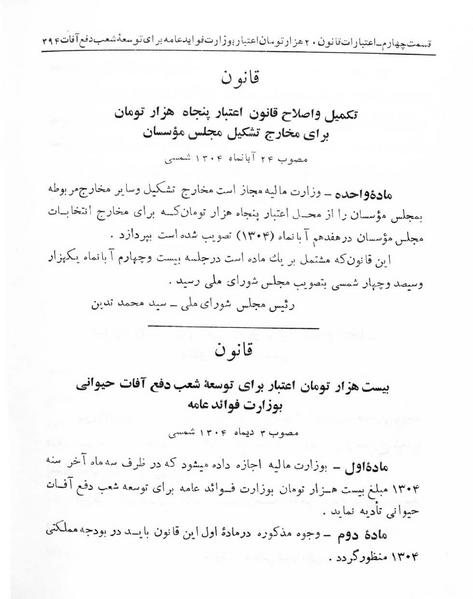 قسمت چهارم ـ اعتبارات قانون ۲۰ هزار تومان اعتبار بوزارت فواید عامه برای توسعهٔ شعب دفع آفات ۳۹۴
قانون
تکمیل واصلاح قانون اعتبار پنجاه هزار تومان
برای مخارج تشکیل مجلس مؤسسان
مصوب ۲۴ آبانماه ۱۳۰۴ شمسی
مادهٔ واحده ـ وزارت مالیه مجاز است مخارج تشکیل وسایر مخارج مربوطه
بمجلس مؤسسان را از محل اعتبار پنجاه هزار تومان که برای مخارج انتخابات
مجلس مؤسسان در هفدهم آبانماه (۱۳۰۴) تصویب شده است بپردازد .
این قانون که مشتمل بر یك ماده است در جلسه بیست وچهارم آبانماه یکهزار
وسیصد وچهار شمسی بتصویب مجلس شورای ملی رسید .
رئیس مجلس شورای ملی ـ سید محمد تدین
قانون
بیست هزار تومان اعتبار برای توسعهٔ شعب دفع آفات حیوانی
بوزارت فوائد عامه
مصوب ۳ دیماه ۱۳۰۴ شمسی
مادهٔ اول ـ بوزارت مالیه اجازه داده میشود که در ظرف سه ماه آخر سنه
۱۳۰۴ مبلغ بیست هزار تومان بوزارت فوائد عامه برای توسعه شعب دفع آفات
حیوانی تأدیه نماید .
مادهٔ دوم ـ وجوه مذکوره در مادهٔ اول این قانون باید در بودجه مملکتی
۱۳۰۴ منظور گردد .